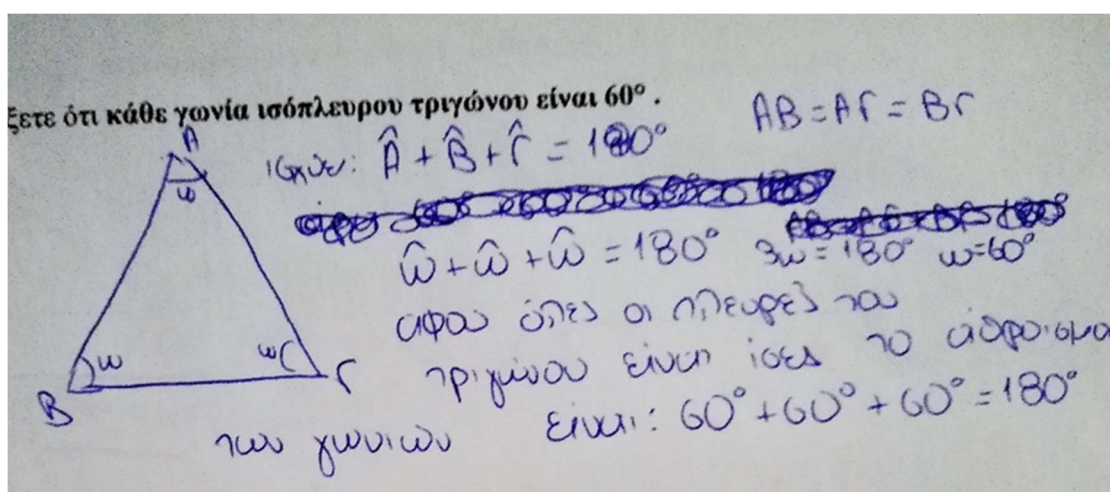 ξετε ότι κάθε γωνία ισόπλευρου τριγώνου είναι 60° .
ΑΒ = ΑΓ = ΒΓ
Α
ισχύει: Â + B̂ + Γ̂ = 180°
ω
ω̂ + ω̂ + ω̂ = 180° 3ω = 180° ω=60°
αφου όλες οι πλευρές του
ω ω Γ τριγώνου είναι ίσες το άθροισμα
Β
των γωνιών είναι: 60° + 60° + 60° = 180°